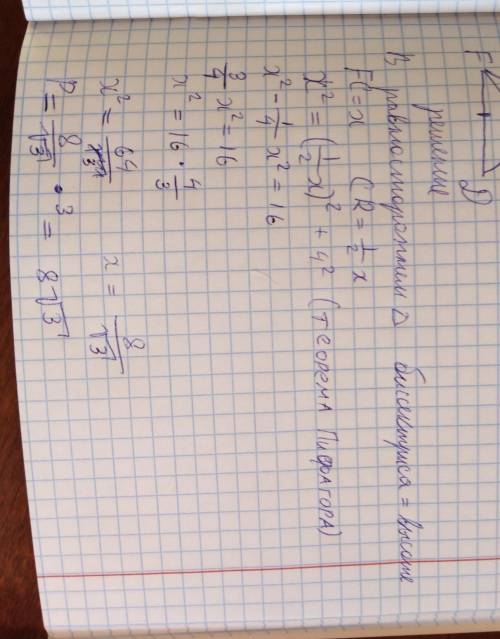 F D
решение
В равностороннем Δ биссектриса = высоте
FC = x CR = 1/2 x
x² = (1/2 x)² + 4² (теорема Пифагора)
x² - 1/4 x² = 16
3/4 x² = 16
x² = 16 · 4/3
x² = 64/3 x = 8/√3
P = 8/√3 · 3 = 8√3